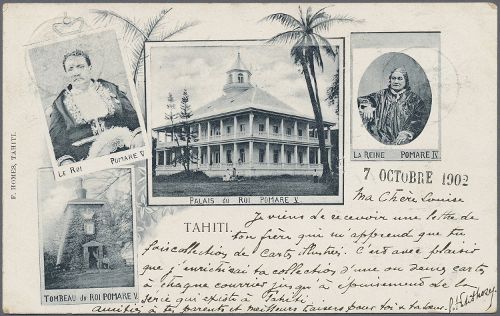 F. HOMES, TAHITI.
LE ROI POMARE V
PALAIS du ROI POMARE V.
LA REINE POMARE IV
TOMBEAU du ROI POMARE V
7 OCTOBRE 1902
TAHITI.
Ma Chère Louise
Je viens de recevoir une lettre de
ton frère qui m'apprend que tu
fais collection de cartes illustrées. C'est avec plaisir
que j'enrichirai ta collection d'une ou deux cartes
à chaque courrier jusqu'à épuisement de la
série qui existe à Tahiti.
Amitiés à tes parents et meilleurs baisers pour toi &